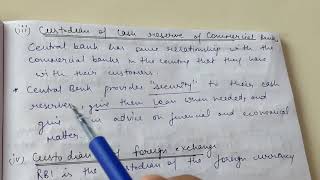 (iii) Custodian of Cash reserve of Commercial Bank
Central bank has same relationship with the
commercial banks in the country that they have
with their customers.
* Central Bank provides "security" to their cash
reserves, give them loan when needed, and
give advice on financial and economical
matter.
(iv) Custodian of foreign exchange
RBI is the custodian of the foreign currency